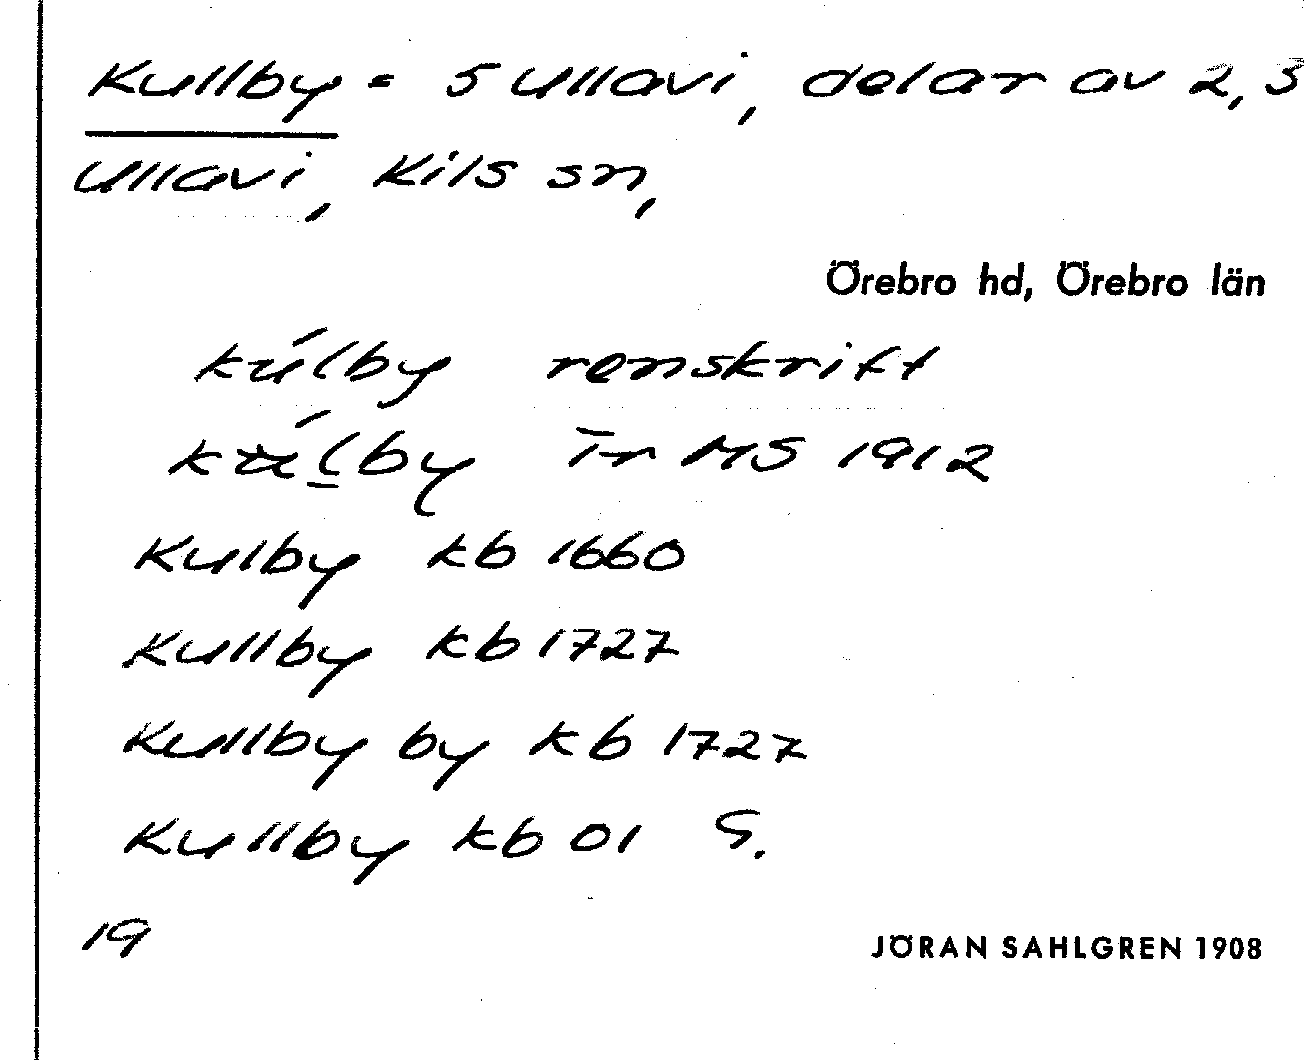 Kullby = 5 Ullavi, delar av 2, 3
Ullavi, Kils sn,
Örebro hd, Örebro län
kúlby renskrift
kúlby Īr MS 1912
Kulby kb 1660
Kullby kb 1727
Kullby by kb 1727
Kullby kb 01 S.
19
JÖRAN SAHLGREN 1908